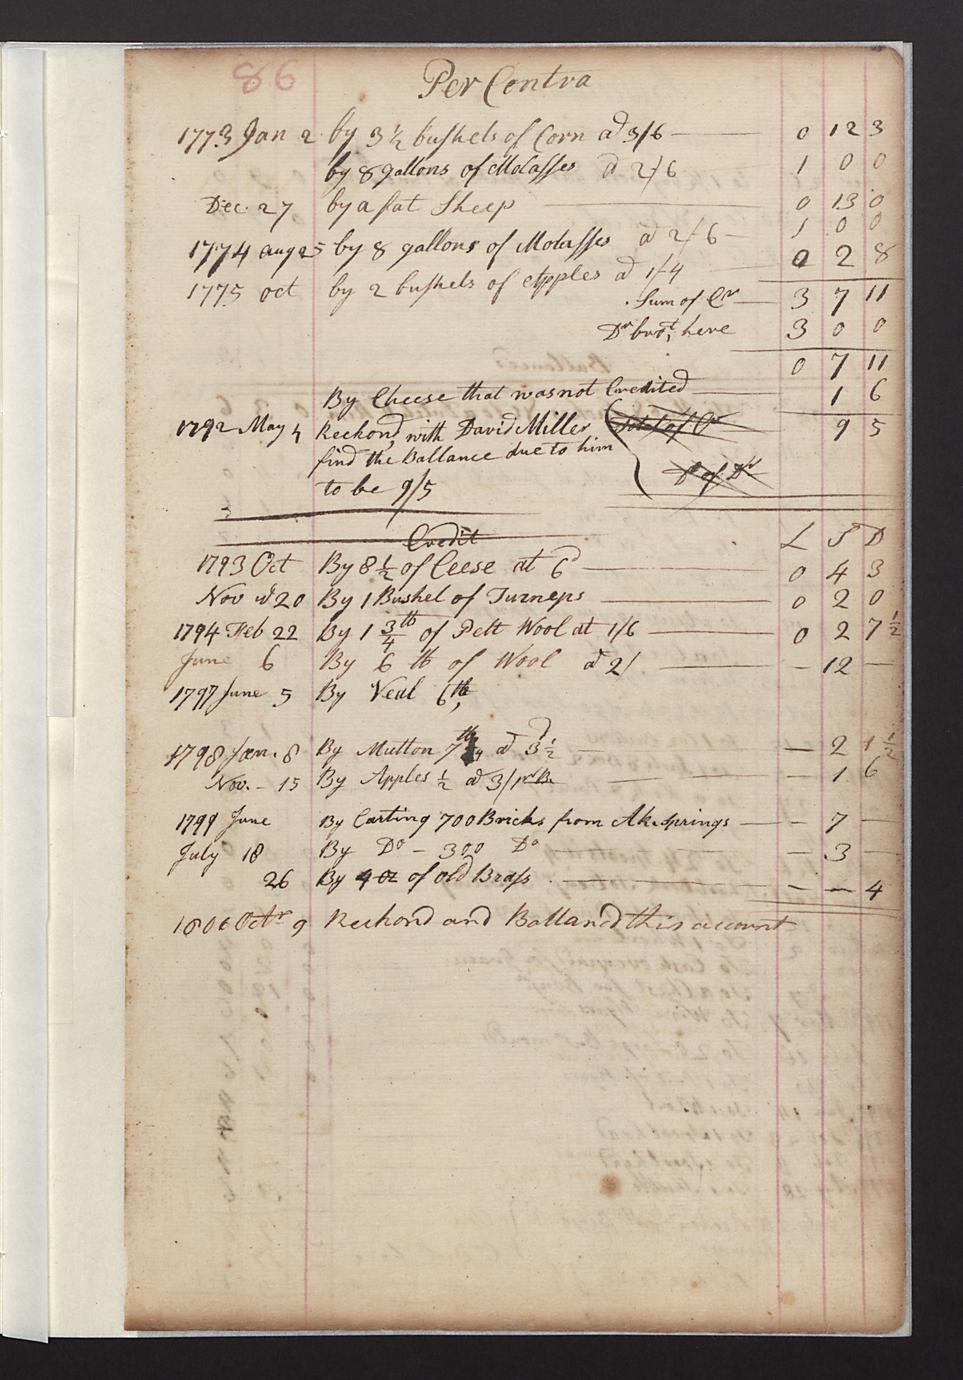 86
Per Contra
1773 Jan 2 by 3½ bushels of Corn a 3/6 — 0 12 3
by 8 gallons of Molasses a 2/6 1 0 0
Dec. 27 by a fat Sheep — 0 13 0
1774 aug 25 by 8 gallons of Molasses a 2/6 — 1 0 0
1775 oct by 2 bushels of Apples a 1/4 0 2 8
Sum of Cr — 3 7 11
Dr brot. here 3 0 0
0 7 11
By Cheese that was not Credited — 1 6
1792 May 4 Reckond with David Miller Total of Cr 9 5
find the Ballance due to him
to be 9/5 Do of Dr
Credit L S D
1793 Oct By 8½ of Ceese at 6d — 0 4 3
Nov ye 20 By 1 Bushel of Turneps — 0 2 0
1794 Feb 22 By 1¾ lb of Pelt Wool at 1/6 — 0 2 7½
June 6 By 6 lb of Wool a 2/ — — 12 —
1797 June 5 By Veal 6 lb,
1798 Jan. 8 By Mutton 7 lb a 3½d — — 2 1½
Nov. - 15 By Apples ½ a 3/ pr B. — — 1 6
1799 June By Carting 700 Bricks from Ak. Springs — — 7 —
July 18 By Do - 300 Do — — 3 —
26 By 4 oz of old Brass. — — — 4
1806 Octr 9 Reckond and Balland this account